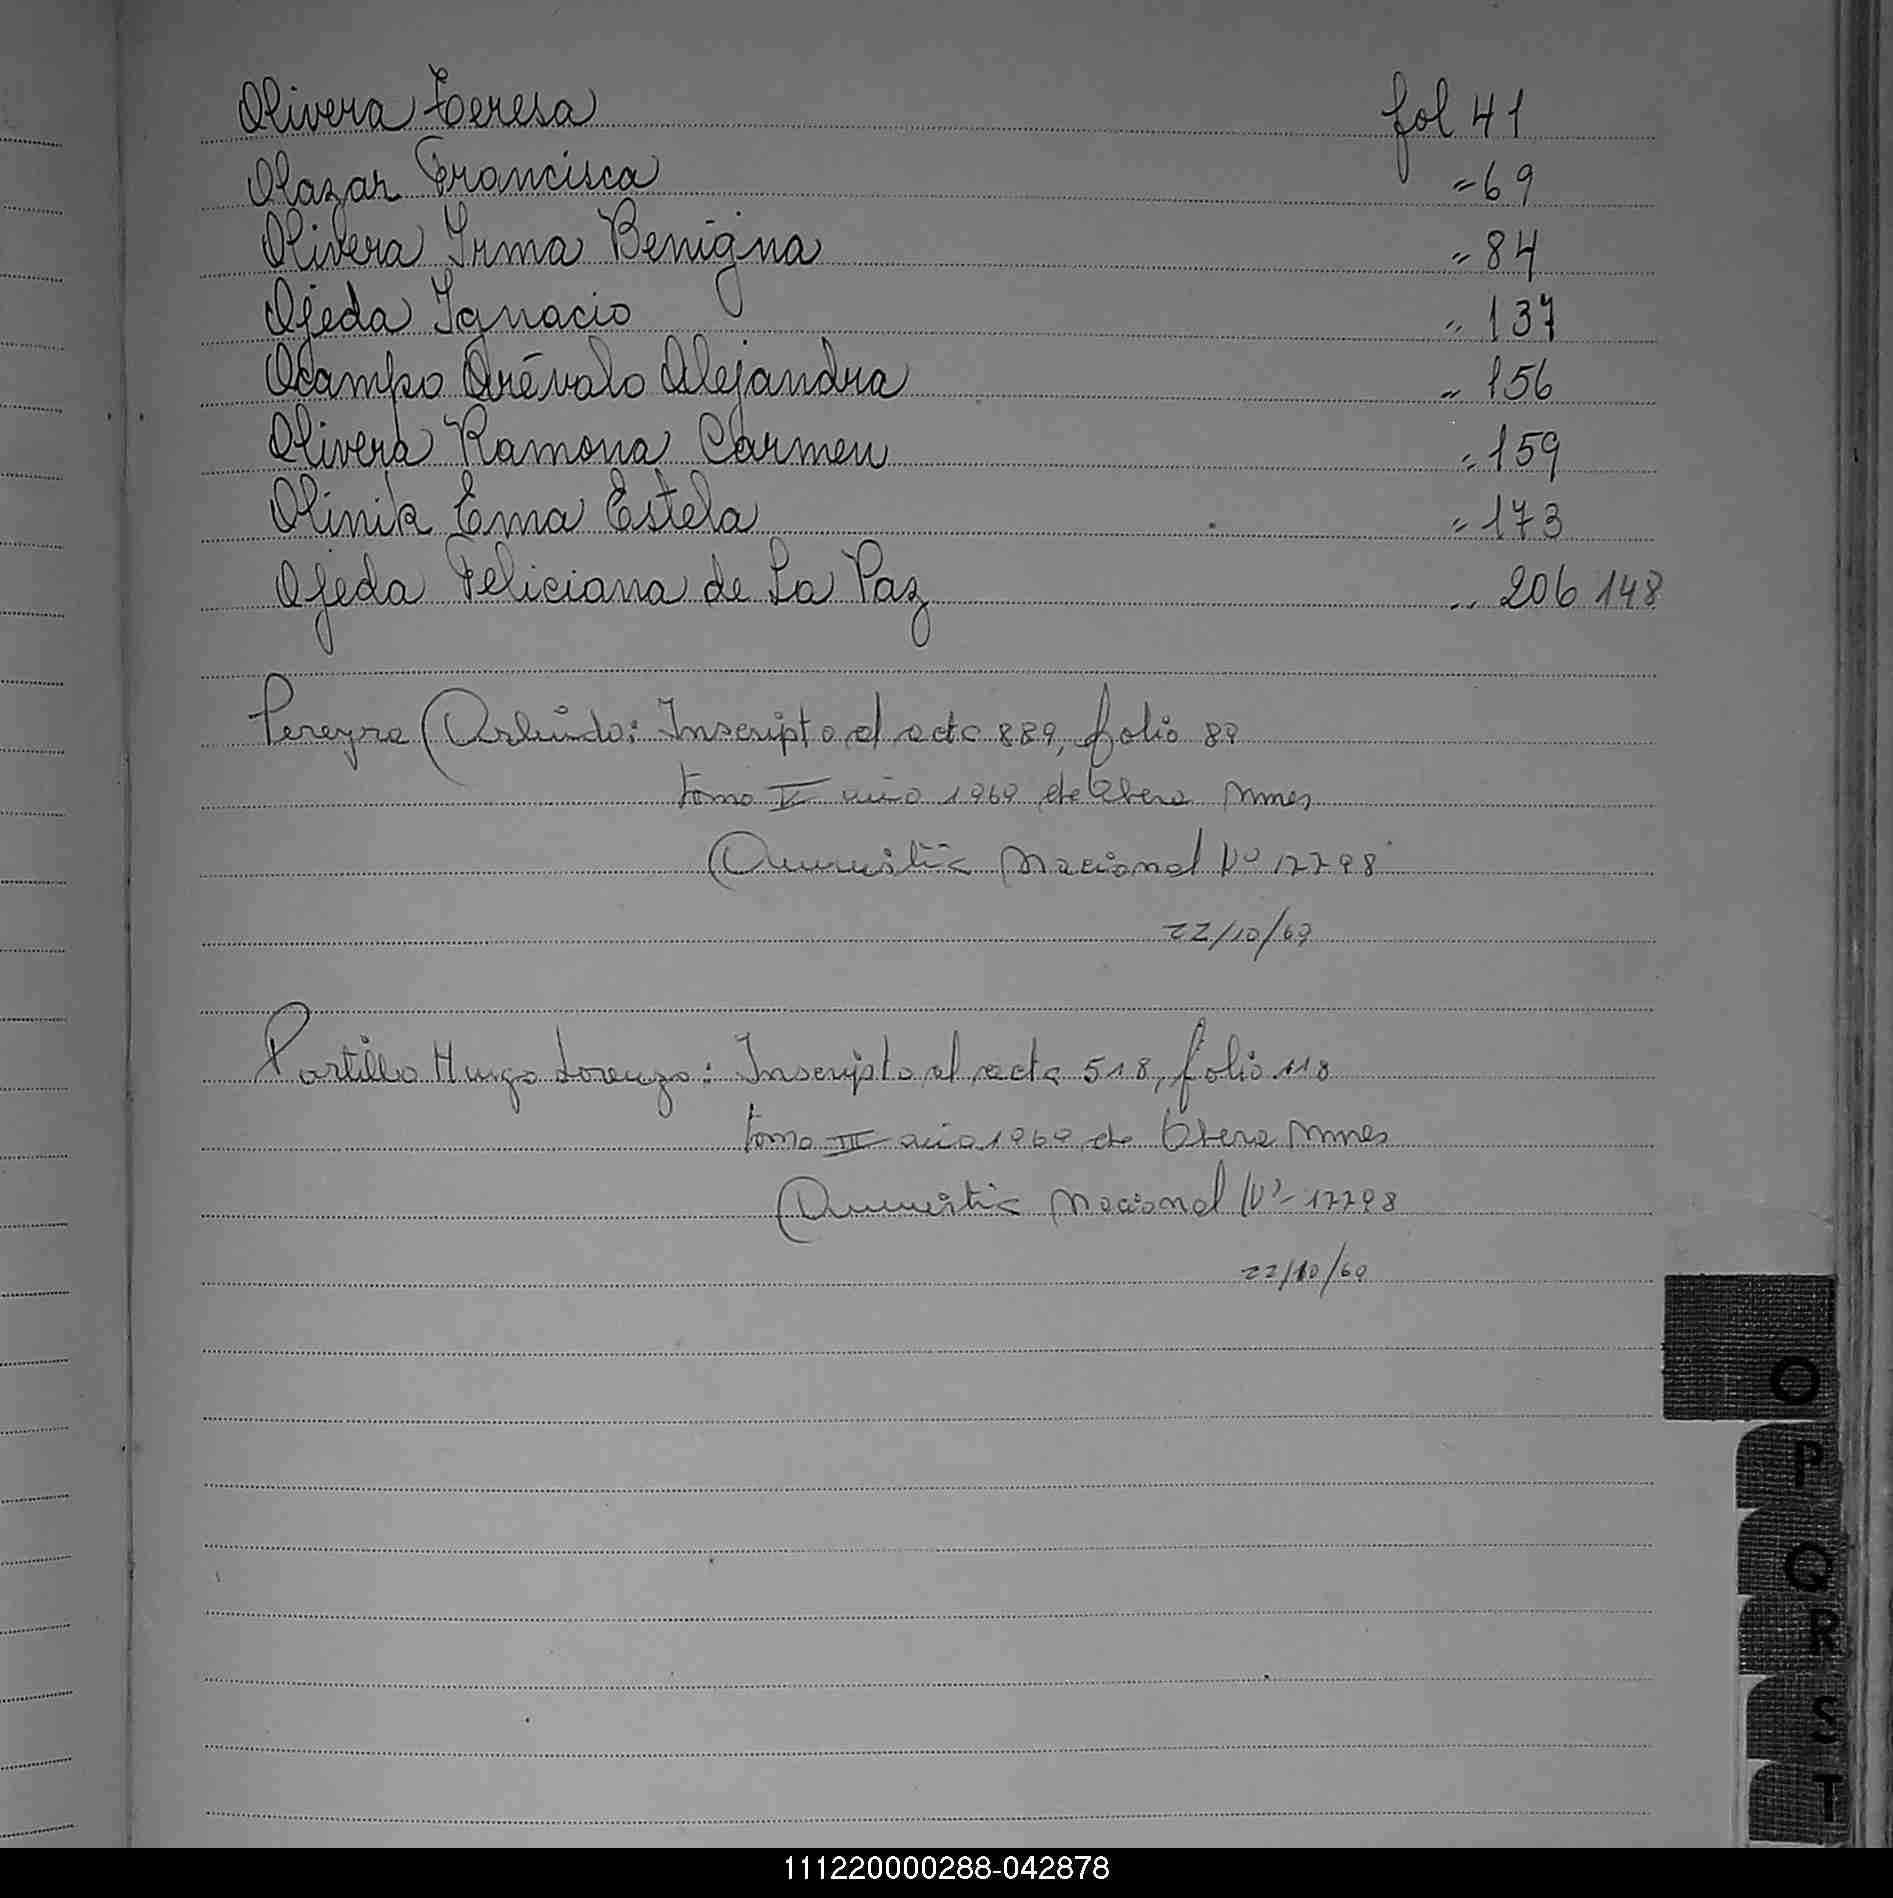 Olivera Teresa fol 41
Olazar Francisca " 69
Olivera Irma Benigna " 84
Ojeda Ignacio " 137
Ocampo Arévalo Alejandra " 156
Olivera Ramona Carmen " 159
Olinik Ema Estela " 173
Ojeda Feliciana de La Paz " 206 148
Pereyra Arlindo: Inscripto al acta 889, folio 89
tomo V año 1969 de Obera Mnes
Amnistia Nacional Nº 17798
22/10/69
Portillo Hugo Lorenzo: Inscripto al acta 518, folio 118
tomo III año 1969 de Obera Mnes
Amnistia Nacional Nº 17798
22/10/69
O
P
Q
R
S
T
111220000288-042878